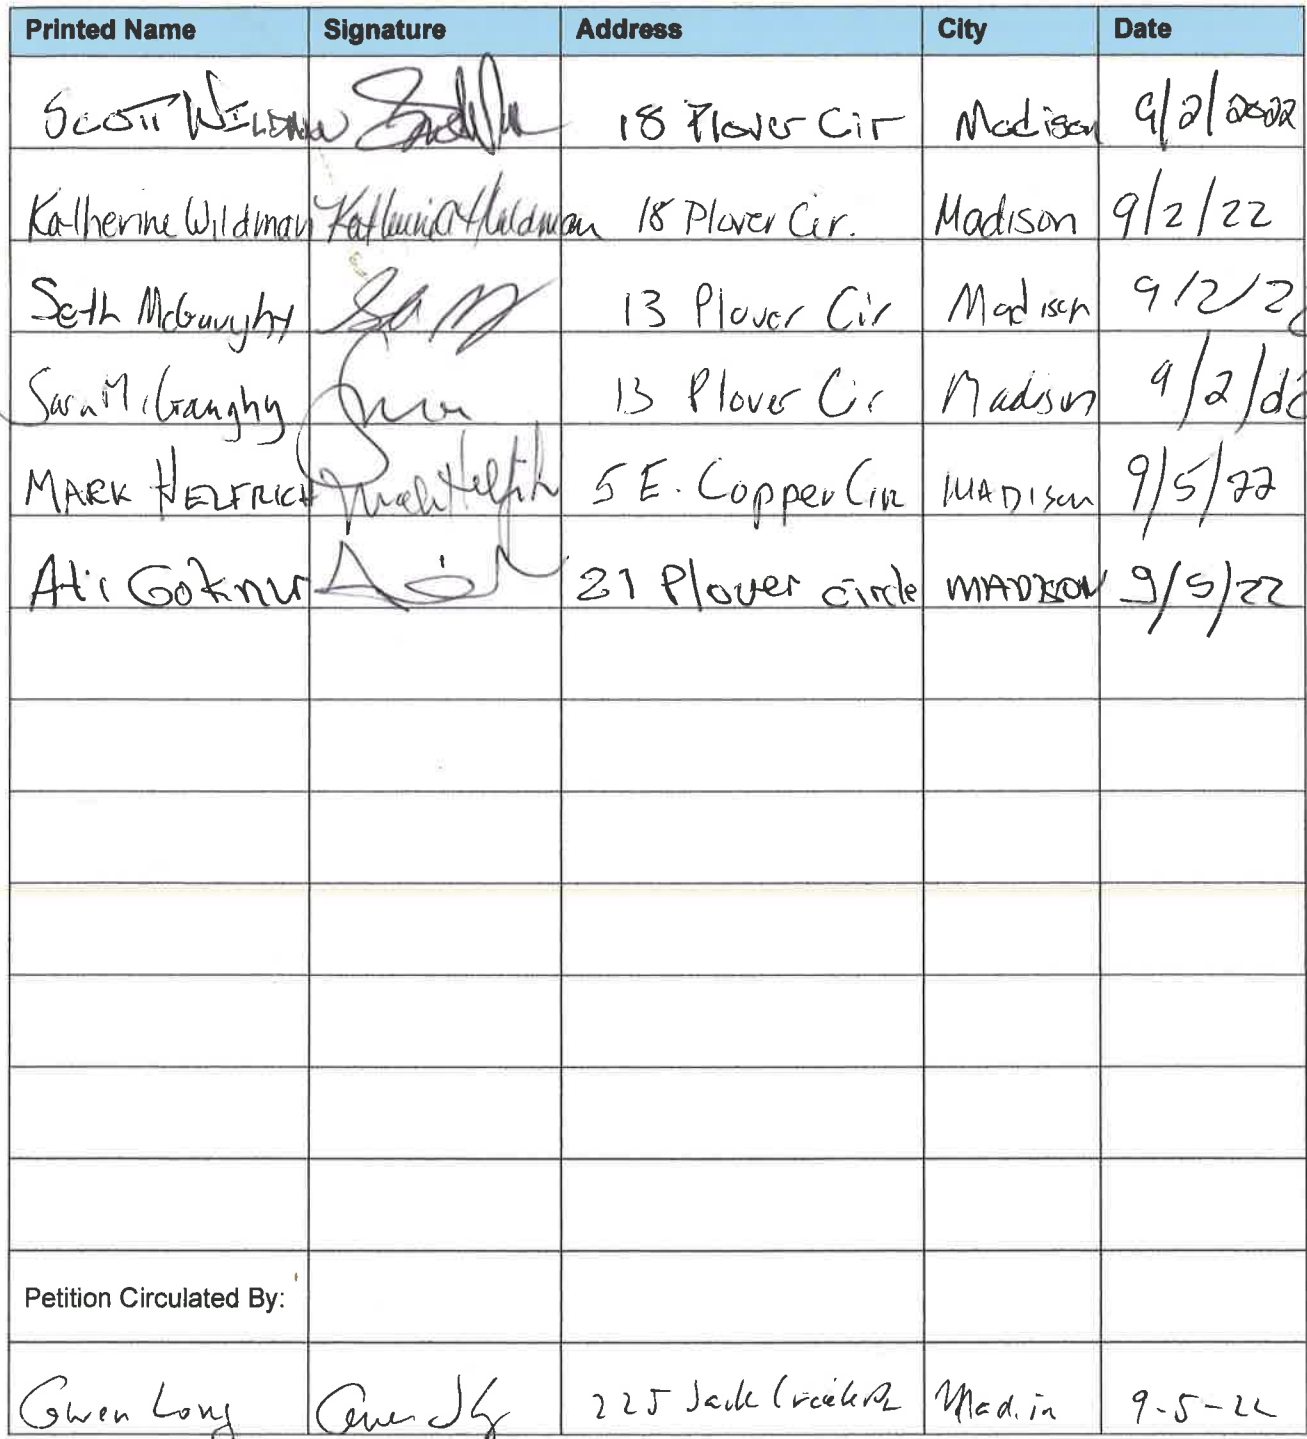 Printed Name Signature Address City Date
SCOTT WILDMAN 18 Plover Cir Madison 9/2/2022
Katherine Wildman Katherine A Wildman 18 Plover Cir. Madison 9/2/22
Seth McGaughy 13 Plover Cir Madison 9/2/22
Sara McGaughy Sara 13 Plover Cir Madison 9/2/22
MARK HELFRICH Mark Helfrich 5 E. Copper Cir MADISON 9/5/22
Ati Goknur 21 Plover circle MADISON 9/5/22
Petition Circulated By:
Gwen Long 225 Jack Creek 9-5-22